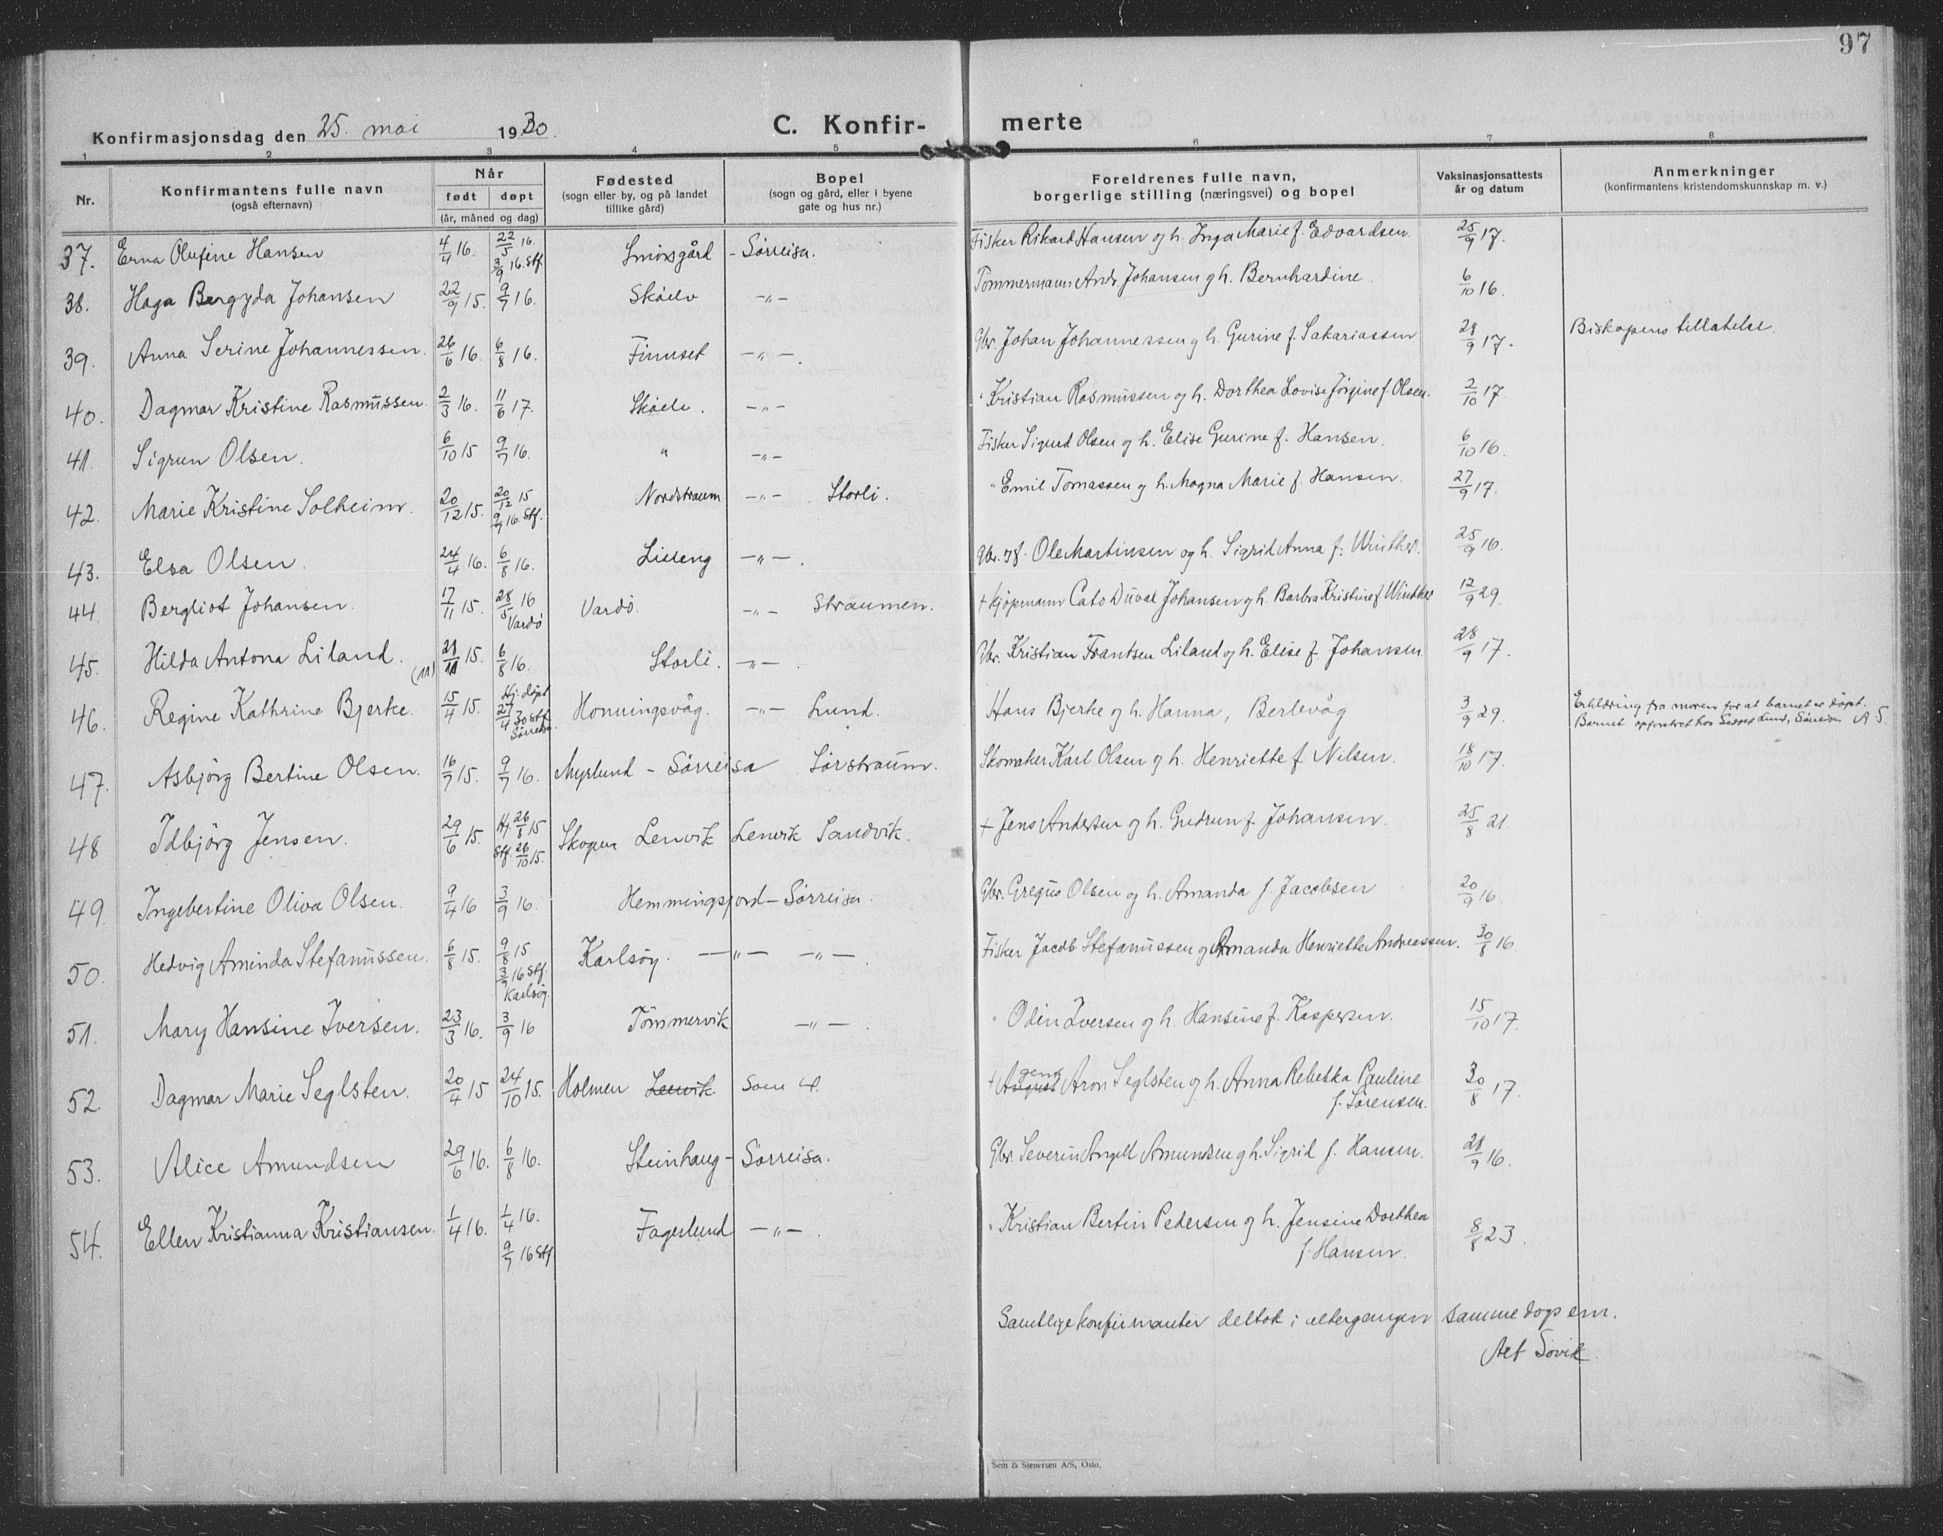 97
Konfirmasjonsdag den 25. mai 1930. C. Konfir- merte
1 2 3 4 5 6 7 8
Nr. Konfirmantens fulle navn (også efternavn) Når født døpt (år, måned og dag) Fødested (sogn eller by, og på landet tillike gård) Bopel (sogn og gård, eller i byene gate og hus nr.) Foreldrenes fulle navn, borgerlige stilling (næringsvei) og bopel Vaksinasjonsattests år og datum Anmerkninger (konfirmantens kristendomskunnskap m. v.)
37. Erna Olufine Hansen 4/4 16. 22/5 16. 3/9 16. Stf. Smørsgård - Sørreisa. Fisker Rikard Hansen og h. Inga Marie f. Edvardsen. 25/9 17.
38. Haga Bergyda Johansen 22/9 15. 9/7 16. Skøelv -"- Tømmermann Andr. Johansen og h. Bernhardine. 6/10 16.
39. Anna Serine Johannessen. 26/6 16. 6/8 16. Finnset -"-. Gbr. Johan Johannessen og h. Gurine f. Sakariassen 28/9 17. Biskopens tillatelse.
40. Dagmar Kristine Rasmussen. 2/3 16. 11/6 17. Skøelv. -"- " Kristian Rasmussen og h. Dorthea Lovise Jørgine f. Olsen. 2/10 17.
41. Sigrun Olsen. 6/10 15 9/7 16. " -"- Fisker Sigurd Olsen og h. Elise Gurine f. Hansen. 6/10 16.
42. Marie Kristine Solheim. 20/12 15. 20/12 15 9/7 16. Stf. Nordstraum -"- Storli. " Emil Tomassen og h. Magna Marie f. Hansen. 27/9 17.
43. Elsa Olsen. 24/4 16. 6/8 16. Lisleng -"- Gbr. Ole Martinsen og h. Sigrid Anna f. Winther. 25/9 16.
44. Bergliot Johansen. 17/11 15. 28/5 16 Vardø Vardø. -"- Straumen. + Kjøpmann Cato Duval Johansen og h. Barbra Kristine f. Winther 12/9 29.
45. Hilda Antona Liland. (11) 21/11 15. 6/8 16. Storli. -"-. Gbr. Kristian Frantsen Liland og h. Elise f. Johansen 28/9 17.
46. Regine Kathrine Bjerke. 15/4 15. Hj. døpt 27/4 30 Stf. Sørreisa. Honningsvåg. -"- Lund. Hans Bjerke og h. Hanna, Berlevåg 3/9 29. Erklæring fra moren for at barnet er døpt. Barnet opfostret hos Lund, Sørreisa A S.
47. Asbjörg Bertine Olsen. 16/7 15. 9/7 16. Myrlund - Sørreisa Sørstraum. Skomaker Karl Olsen og h. Henriette f. Nilsen. 18/10 17.
48 Idbjörg Jensen. 29/6 15. Hj. 26/8 15 Stf. 26/10 15. Skogen Lenvik Lenvik Sandvik. + Jens Andersen og h. Gudrun f. Johansen. 25/8 21.
49. Ingebertine Oliva Olsen. 9/4 16 3/9 16. Hemmingsfjord - Sørreisa. Gbr. Gregus Olsen og h. Amanda f. Jacobsen 20/9 16.
50. Hedvig Aminda Stefanussen. 6/8 15. 9/8 15 3/9 16 Stf. Karlsøy. Karlsøy. -"- -"-. Fisker Jacob Stefanussen og Amanda Henriette Andreassen. 30/8 16
51. Mary Hansine Iversen. 23/3 16. 3/9 16 Tömmervik -"-. " Odin Iversen og h. Hansine f. Kaspersen. 15/10 17.
52. Dagmar Marie Seglsten. 20/4 15 24/10 15. Holmen Lenvik Som 4. + August Agent Aron Seglsten og h. Anna Rebekka Pauline f. Sørensen. 30/8 17.
53. Alice Amundsen 29/6 16. 6/8 16. Steinhaug - Sørreisa. Gbr. Severin Angell Amundsen og h. Sigrid f. Hansen. 21/9 16.
54. Ellen Kristianna Kristiansen. 1/4 16. 1/4 16. 9/7 16 Stf Fagerlund -"-. " Kristian Bertin Pedersen og h. Jensine Dorthea f. Hansen. 8/8 23.
Samtlige konfirmanter deltok i altergangen samme dags em.
Alf Søvik.
Sem & Stenersen A/S, Oslo.